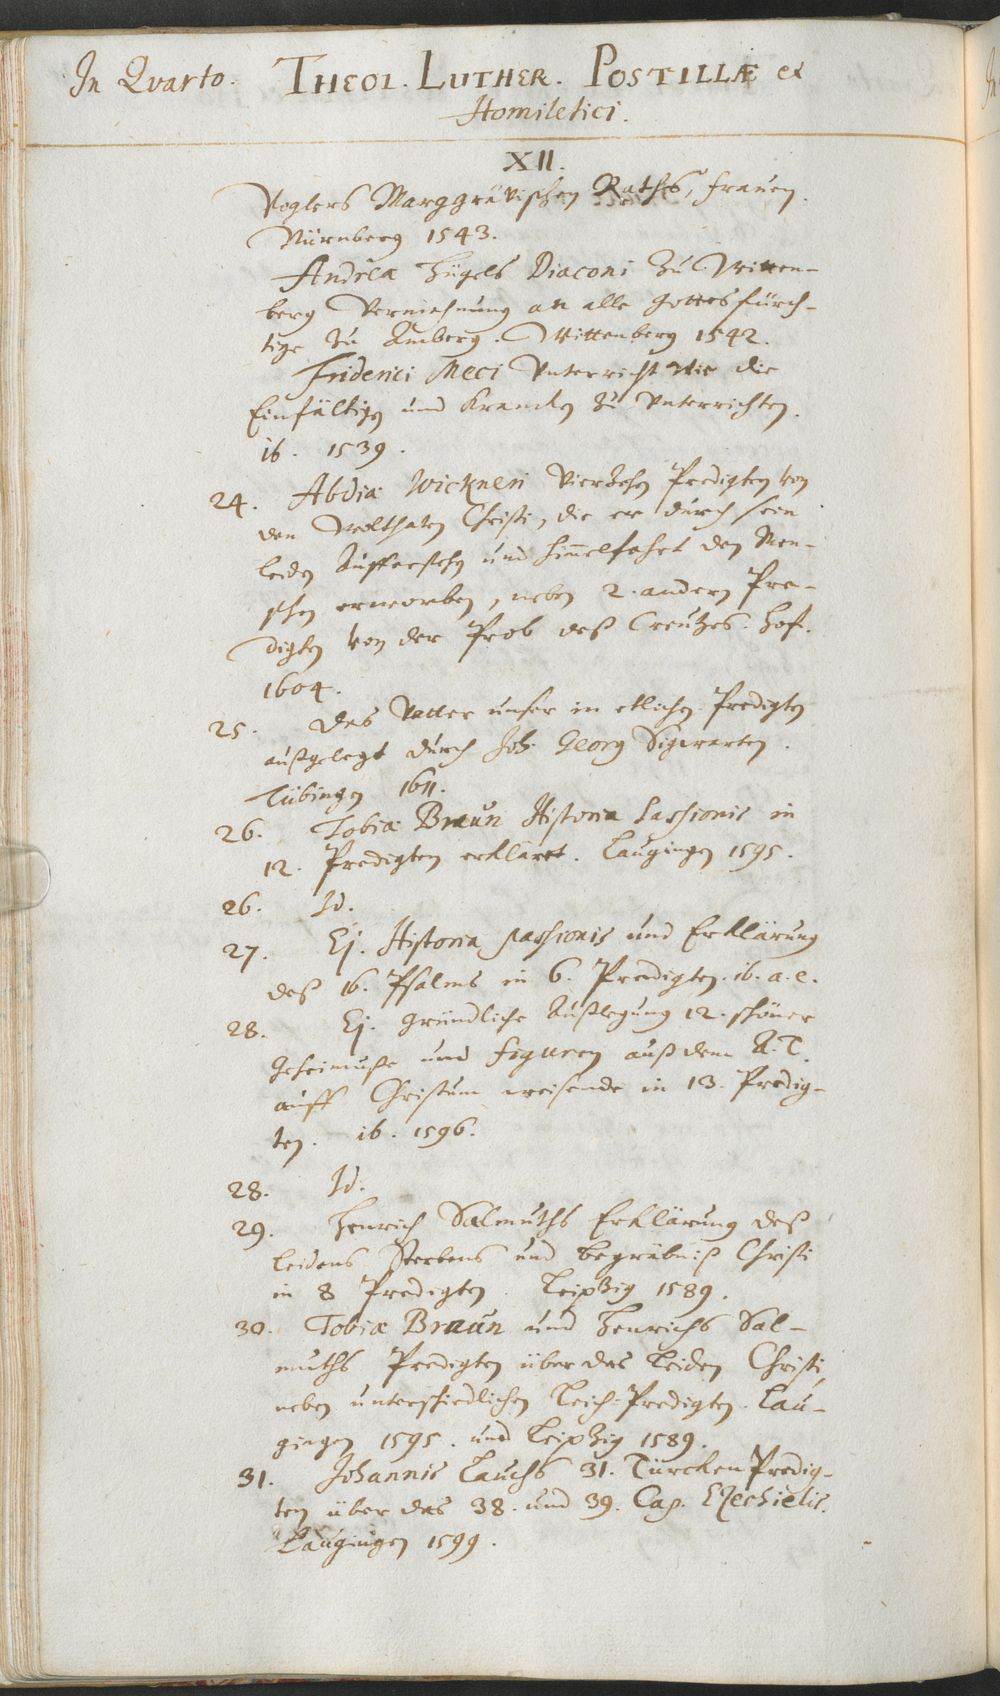 In Qvarto. THEOL. LUTHER. POSTILLÆ et
Homiletici.
XII.
Voglers Marggrävischen Raths, frauen.
Nürnberg 1543.
Andreæ Hügels Diaconi zu Witten-
berg Vermahnung an alle Gottesfürch-
tige zu Amberg. Wittenberg 1542.
Friderici Meci Unterricht wie die
Einfältigen und Krancken zu unterrichten.
ib. 1539.
24. Abdiæ Wickneri Vierzehen Predigten von
den Wolthaten Christi, die er durch sein
leiden Aufferstehen und himmelfahrt den Men-
schen erworben, neben 2. andern Pre-
digten von der Prob deß Creutzes. Hof.
1604.
25. Das Vatter unser in etlichen Predigten
außgelegt durch Joh. Georg Sigwarten.
Tübingen 1611.
26. Tobiæ Braun Historia Passionis in
12. Predigten erkläret. Laugingen 1595.
26. Id.
27. Ej. Historia passionis und Erklärung
deß 16. Psalms in 6. Predigten. ib. a. e.
28. Ej. gründliche Außlegung 12. schöner
Geheimnuße und figuren auß dem A. T.
auff Christum weisende in 13. Predig-
ten. ib. 1596.
28. Id.
29. Henrich Salmuths Erklärung deß
leidens Sterbens und begräbniß Christi
in 8 Predigten. Leipzig 1589.
30. Tobiæ Braun und Henrichs Sal-
muths Predigten über das Leiden Christi,
neben unterschiedlichen Leich-Predigten. Lau-
gingen 1595. und Leipzig 1589.
31. Johannis Lauchs 31. Türcken Predig-
ten über das 38. und 39. Cap. Ezechielis.
Laugingen 1599.